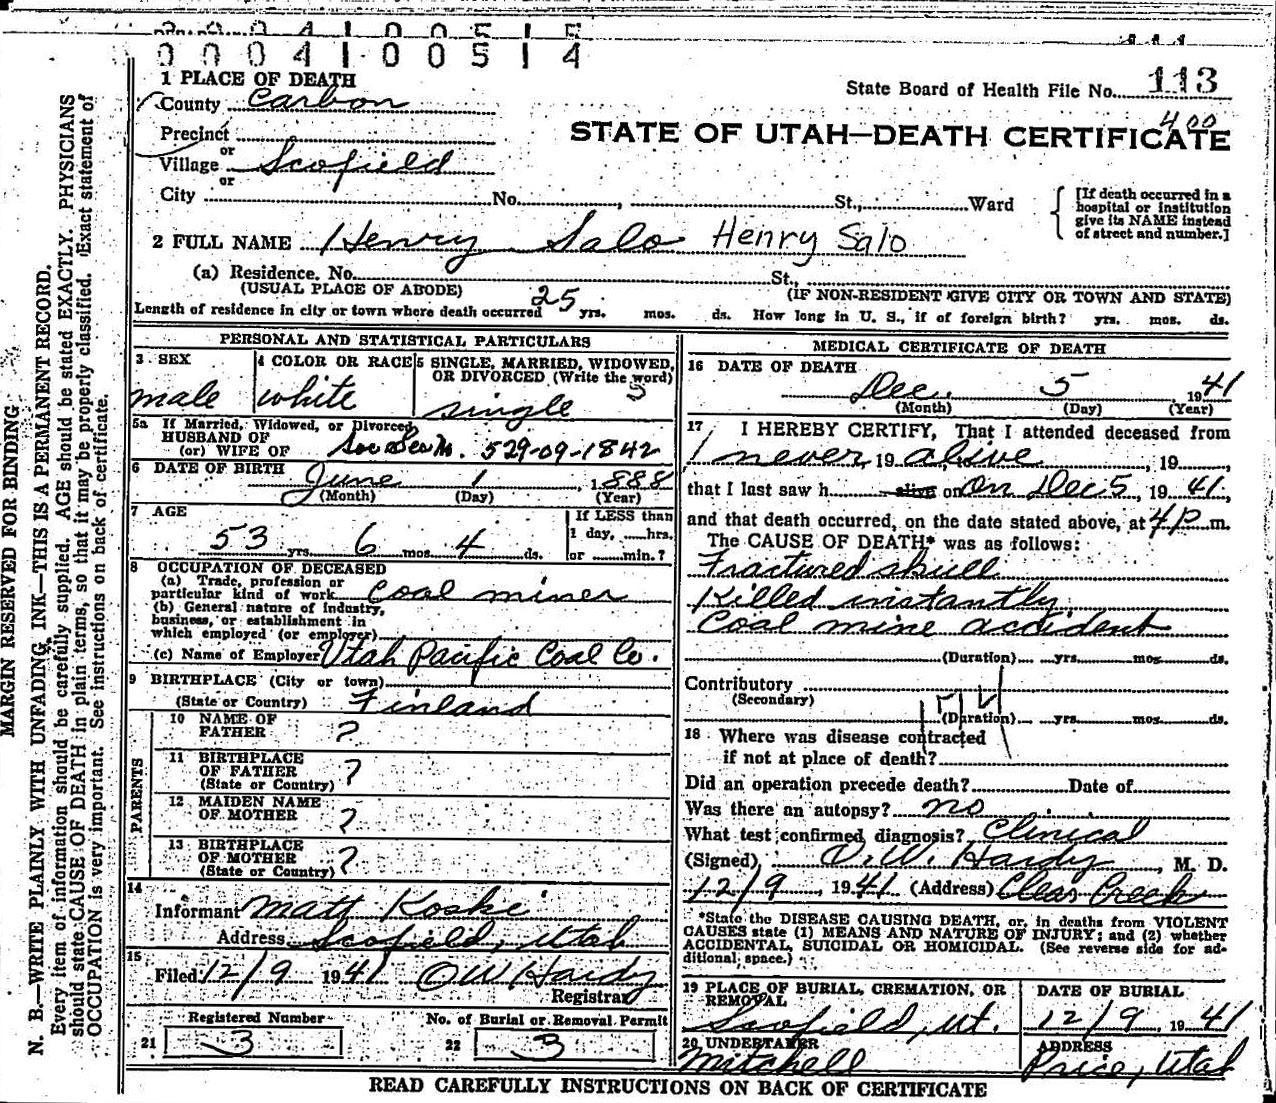 0004100514
1 PLACE OF DEATH
County Carbon
State Board of Health File No. 113
400
Precinct
or
Village Scofield
or
STATE OF UTAH—DEATH CERTIFICATE
City No. , St., Ward
[If death occurred in a hospital or institution give its NAME instead of street and number.]
2 FULL NAME Henry Salo Henry Salo
(a) Residence. No. St.,
(USUAL PLACE OF ABODE) (IF NON-RESIDENT GIVE CITY OR TOWN AND STATE)
Length of residence in city or town where death occurred 25 yrs. mos. ds. How long in U. S., if of foreign birth? yrs. mos. ds.
PERSONAL AND STATISTICAL PARTICULARS
3 SEX
male
4 COLOR OR RACE
white
5 SINGLE, MARRIED, WIDOWED, OR DIVORCED (Write the word)
S
single
5a If Married, Widowed, or Divorced
HUSBAND OF
(or) WIFE OF Soc Sec No. 529-09-1842
6 DATE OF BIRTH June 1 1888
(Month) (Day) (Year)
7 AGE
53 yrs. 6 mos. 4 ds.
If LESS than
1 day, hrs.
or min.?
8 OCCUPATION OF DECEASED
(a) Trade, profession or
particular kind of work Coal miner
(b) General nature of industry,
business, or establishment in
which employed (or employer)
(c) Name of Employer Utah Pacific Coal Co.
9 BIRTHPLACE (City or town)
(State or Country) Finland
PARENTS
10 NAME OF
FATHER ?
11 BIRTHPLACE
OF FATHER ?
(State or Country)
12 MAIDEN NAME
OF MOTHER ?
13 BIRTHPLACE
OF MOTHER ?
(State or Country)
14
Informant Matt Koski
Address Scofield, Utah
15
Filed 12/9 1941 OW Hardy
Registrar
Registered Number
21 3
No. of Burial or Removal Permit
22 3
MEDICAL CERTIFICATE OF DEATH
16 DATE OF DEATH
Dec. 5 1941
(Month) (Day) (Year)
17 I HEREBY CERTIFY, That I attended deceased from
never, 19 alive, 19
that I last saw h alive on On Dec 5, 1941,
and that death occurred, on the date stated above, at 4 p m.
The CAUSE OF DEATH* was as follows:
Fractured skull
Killed instantly
Coal mine accident
(Duration) yrs. mos. ds.
Contributory
(Secondary)
(Duration) yrs. mos. ds.
18 Where was disease contracted
if not at place of death?
Did an operation precede death? Date of
Was there an autopsy? no
What test confirmed diagnosis? Clinical
(Signed) O.W. Hardy, M. D.
12/9, 1941 (Address) Clear Creek
*State the DISEASE CAUSING DEATH, or, in deaths from VIOLENT
CAUSES state (1) MEANS AND NATURE OF INJURY; and (2) whether
ACCIDENTAL, SUICIDAL OR HOMICIDAL. (See reverse side for ad-
ditional space.)
19 PLACE OF BURIAL, CREMATION, OR
REMOVAL
Scofield, Ut.
DATE OF BURIAL
12/9, 1941
20 UNDERTAKER
Mitchell
ADDRESS
Price, Utah
READ CAREFULLY INSTRUCTIONS ON BACK OF CERTIFICATE
MARGIN RESERVED FOR BINDING
N. B.—WRITE PLAINLY WITH UNFADING INK—THIS IS A PERMANENT RECORD.
Every item of information should be carefully supplied. AGE should be stated EXACTLY. PHYSICIANS
should state CAUSE OF DEATH in plain terms, so that it may be properly classified. Exact statement of
OCCUPATION is very important. See instructions on back of certificate.